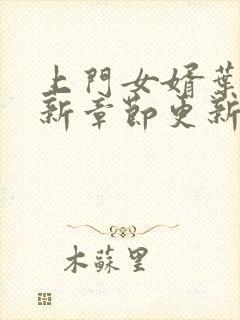 上門女婿葉
新章節更新
木蘇里